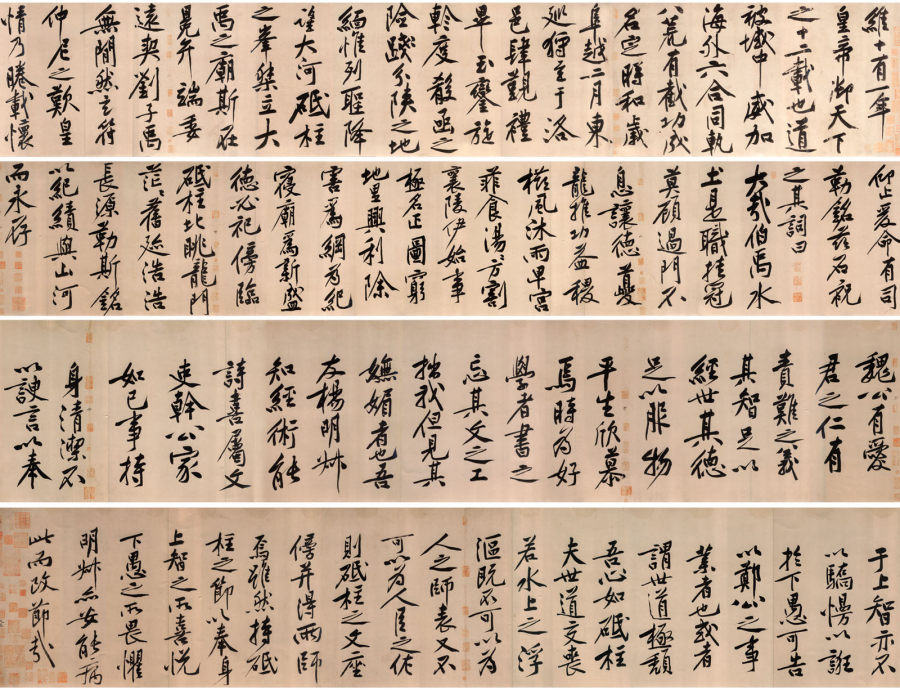 維十有一年
皇帝御天下
之十二載也道
被域中威加
海外六合同軌
八荒有截功成
名定時和歲
阜越二月東
巡狩至于洛
邑肆觀禮
畢玉鑾旋
軫度殽函之
險踐分陝之地
緬惟列聖降
望大河砥柱
之峯桀立大
禹之廟斯在
冕弁端委
遠契劉子禹
無閒然玄符
仲尼之歎皇
情乃睠載懷
仰止爰命有司
勒銘茲石祝
之其詞曰
大哉伯禹水
土是職挂冠
莫顧過門不
息讓德夔
龍推功益稷
櫛風沐雨卑宮
菲食湯〻方割
襄陵伊始事
極名正圖窮
地里興利除
害為綱為紀
寢廟為新盛
德必祀傍臨
砥柱北眺龍門
茫〻舊迹浩浩
長源勒斯銘
以紀績與山河
而永存
魏公有愛
君之仁有
責難之義
其智足以
經世其德
足以服物
平生欣慕
焉時為好
學者書之
忘其文之工
拙我但見其
嫵媚者也吾
友楊明叔
知經術能
詩喜屬文
吏幹公家
如己事持
身清潔不
以諛言以奉
于上智亦不
以驕慢以誑
於下愚可告
以鄭公之事
業者也或者
謂世道極頹
吾心如砥柱
夫世道交喪
若水上之浮
漚既不可以為
人之師表又不
可以為人臣之佐
則砥柱之文座
傍并得兩師
焉雖然持砥
柱之節以奉身
上智之所喜悅
下愚之所畏懼
明叔亦安能病
此而改節哉